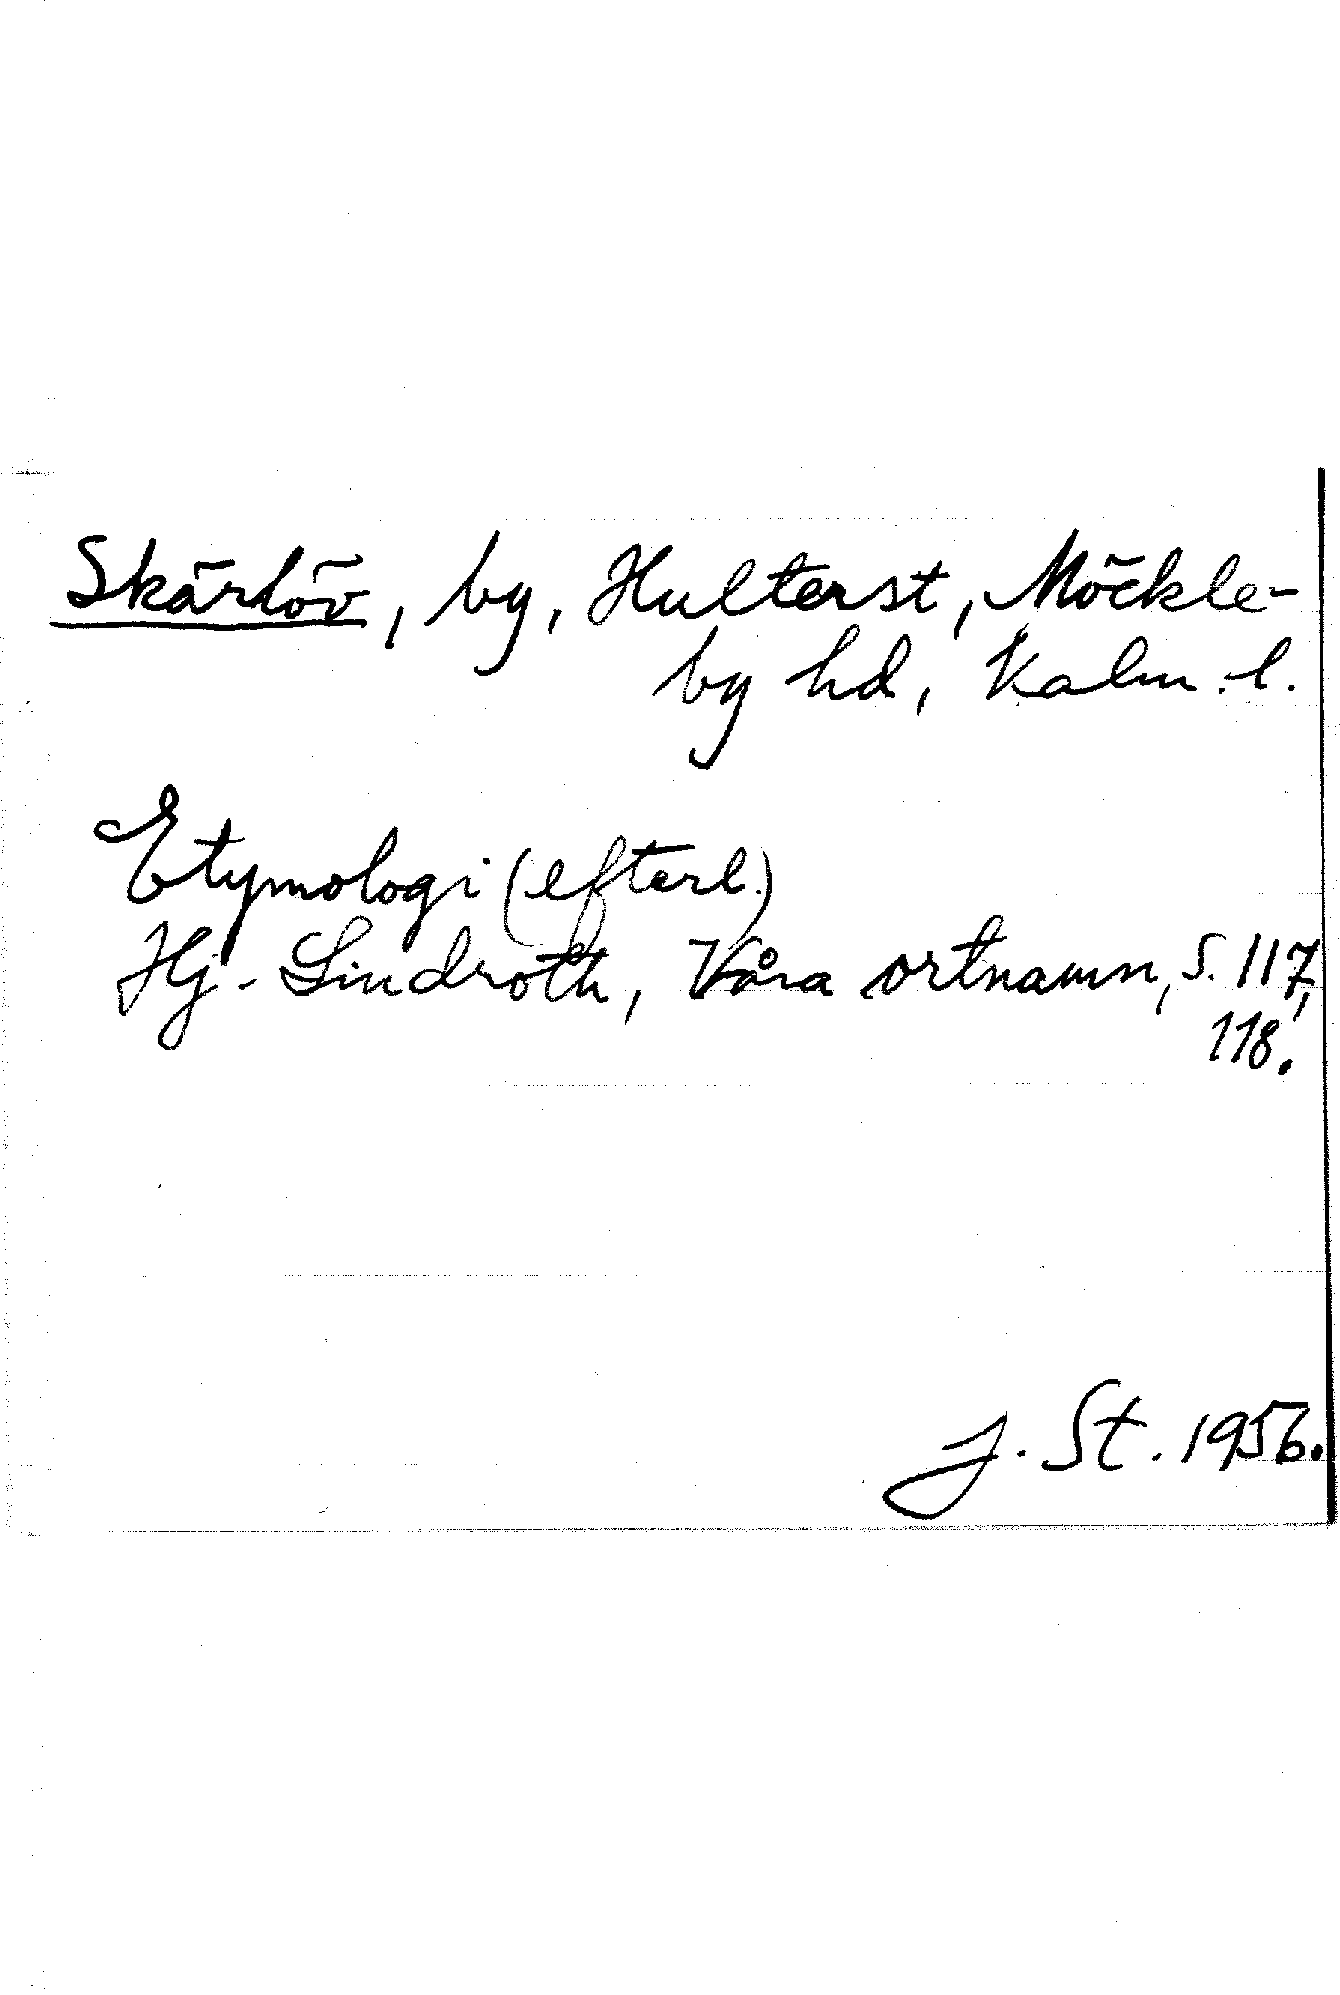 Skärlöv, by, Hulterst, Möckle-
by hd, Kalm. l.
Etymologi (efterl.)
Hj. Lindroth, Våra ortnamn, s. 117,
118.
J. St. 1956.